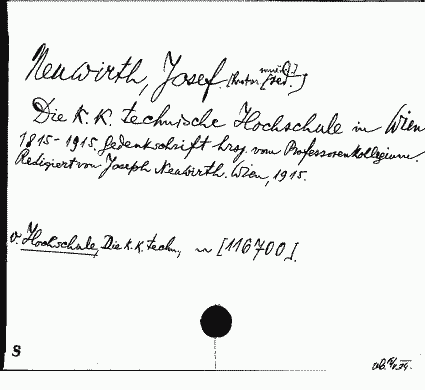 Neuwirth, Josef. red.
Die K. K. technische Hochschule in Wien
1815-1915. Gedenkschrift hrsg. vom Professorenkollegium.
Redigiert von Joseph Neuwirth. Wien, 1915.
v. Hochschule, Die K. K. techn., in [116700].
S